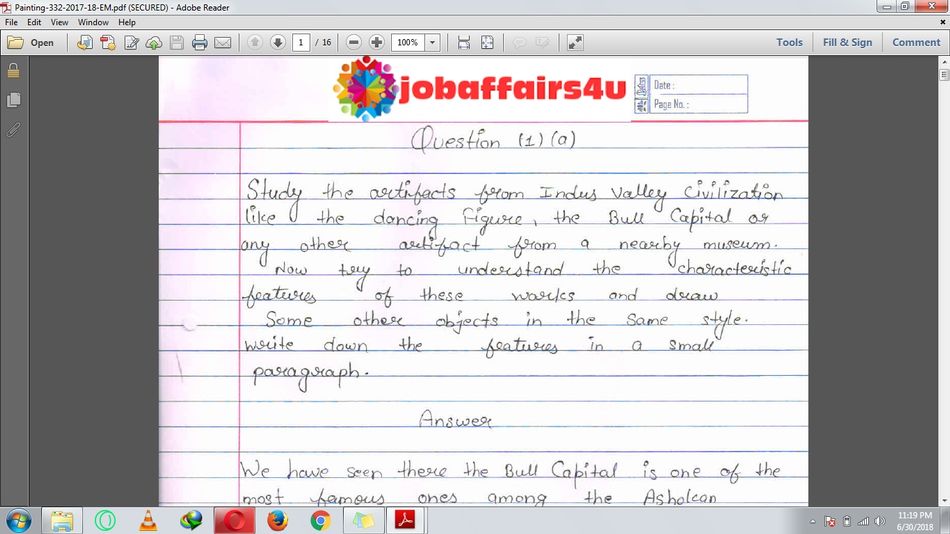 Painting-332-2017-18-EM.pdf (SECURED) - Adobe Reader
File Edit View Window Help
Open 1 / 16 100% Tools Fill & Sign Comment
jobaffairs4u
Date :
Page No. :
Question (1) (a)
Study the artifacts from Indus Valley Civilization
like the dancing Figure, the Bull Capital or
any other artifact from a nearby museum.
Now try to understand the characteristic
features of these works and draw
Some other objects in the same style.
write down the features in a small
paragraph.
Answer
We have seen there the Bull Capital is one of the
most famous ones among the Asholcan
11:19 PM
6/30/2018